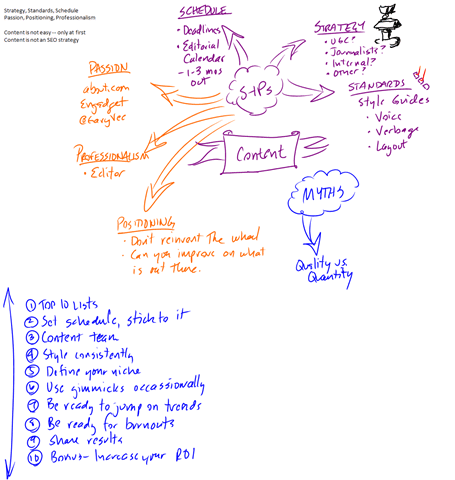 Strategy, Standards, Schedule
Passion, Positioning, Professionalism
Content is not easy — only at first
Content is not an SEO strategy
SCHEDULE
• Deadlines
• Editorial
Calendar
- 1-3 mos
out
STRATEGY
• UGC?
• Journalists?
• Internal?
• Other?
PASSION
about.com
Engadget
@GaryVee
S+Ps
STANDARDS
Style Guides
• Voice
• Verbage
• Layout
PROFESSIONALISM
• Editor
Content
MYTHS
POSITIONING
• Don't reinvent the wheel
• Can you improve on what
is out there.
Quality vs.
Quantity
1 TOP 10 LISTS
2 Set schedule, stick to it
3 Content team
4 Style consistently
5 Define your niche
6 Use gimmicks occassionally
7 Be ready to jump on trends
8 Be ready for burnouts
9 Share results
10 Bonus - Increase your ROI